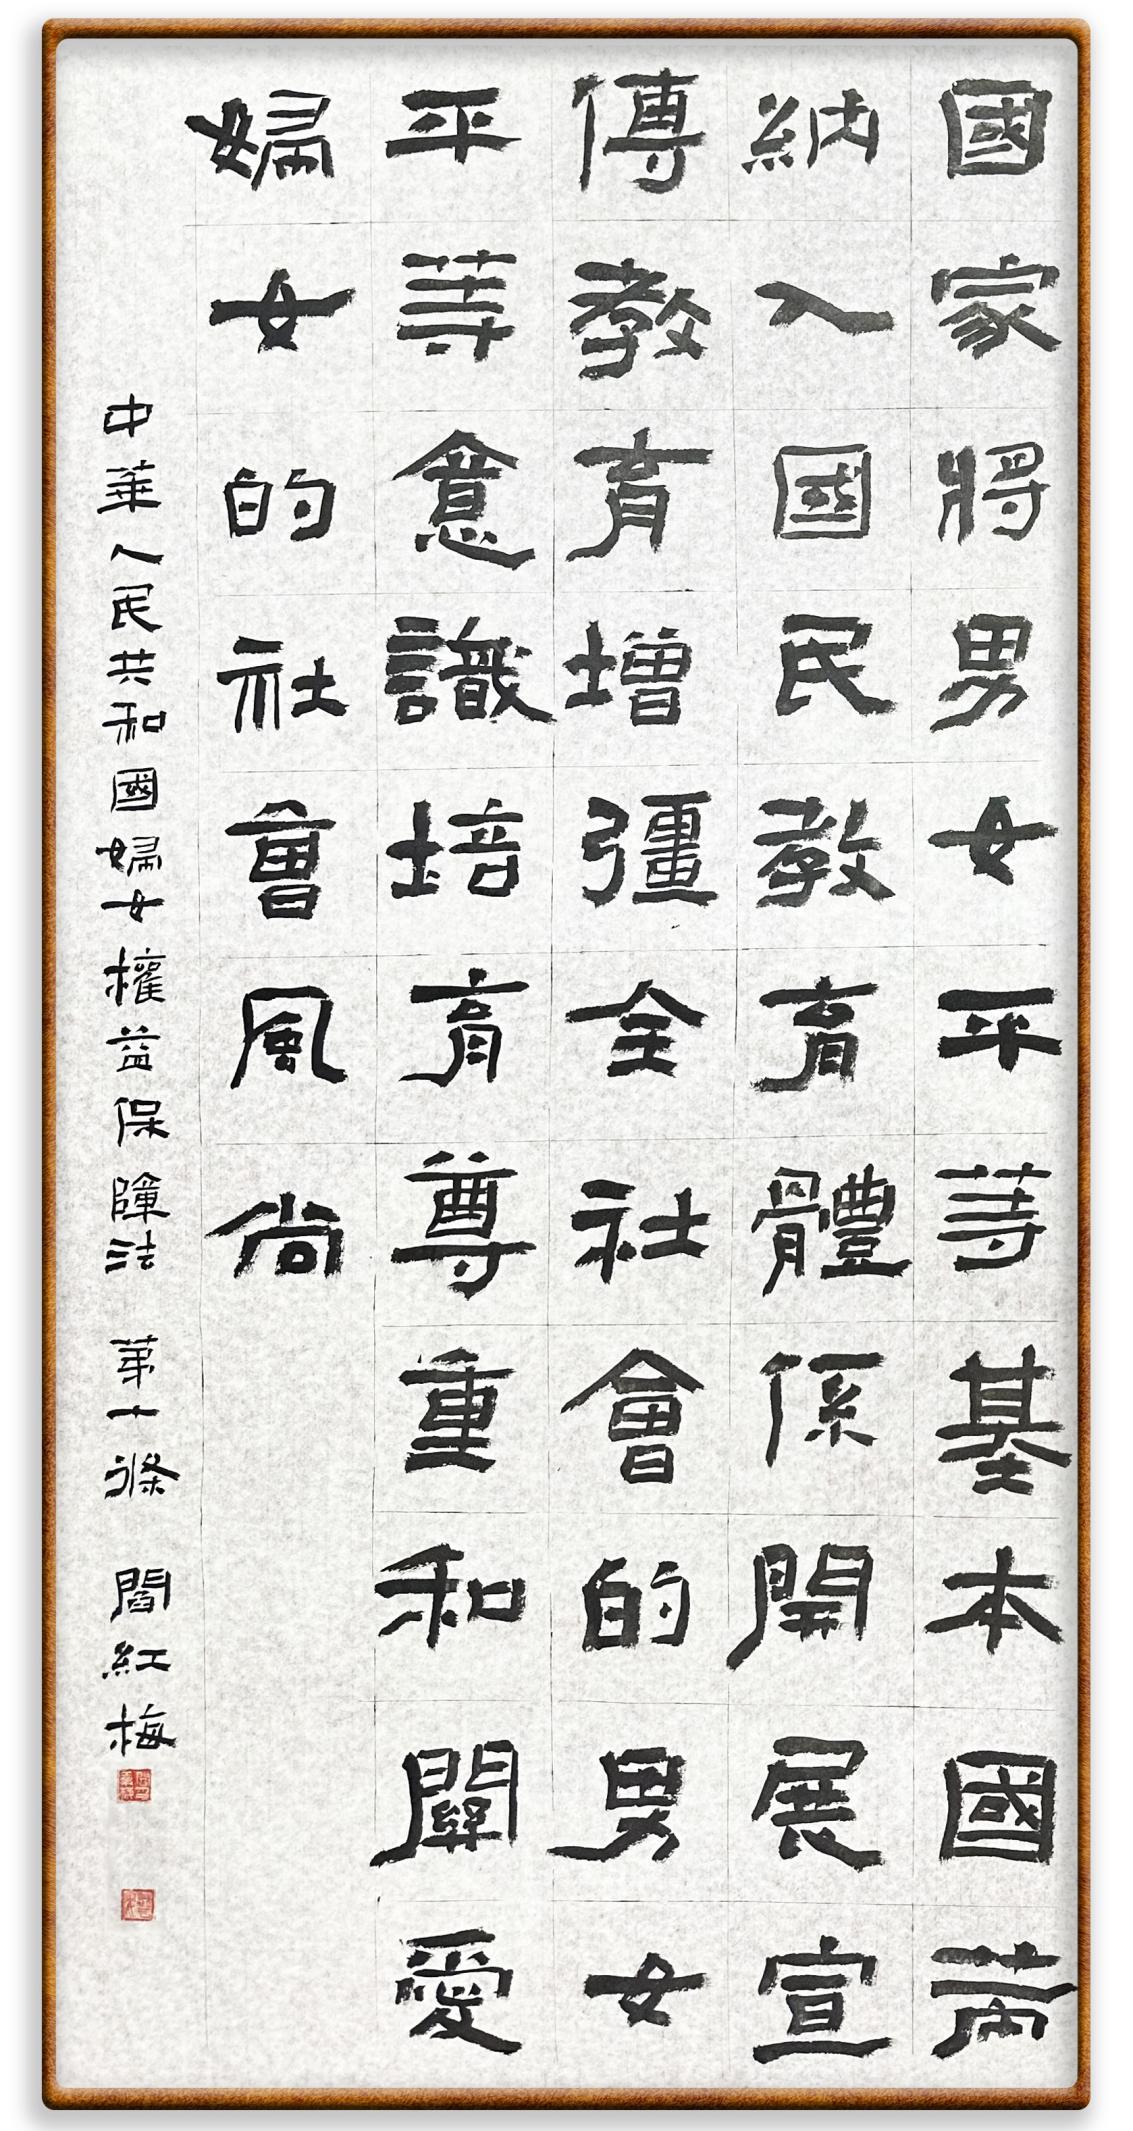 國家將男女平等基本國策
納入國民教育體係開展宣
傳教育增彊全社會的男女
平等意識培育尊重和關愛
婦女的社會風尚
中華人民共和國婦女權益保障法 第十條 閻紅梅